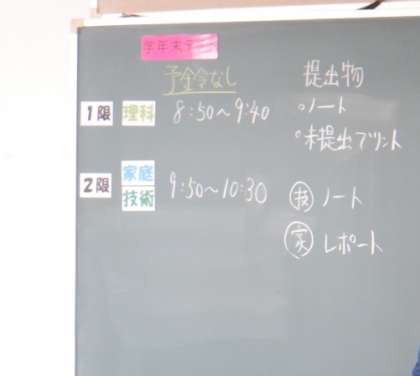 学年末テスト
予令なし
提出物
1限 理科 8:50〜9:40
・ノート
・未提出プリント
2限 家庭 技術 9:50〜10:30
技 ノート
家 レポート